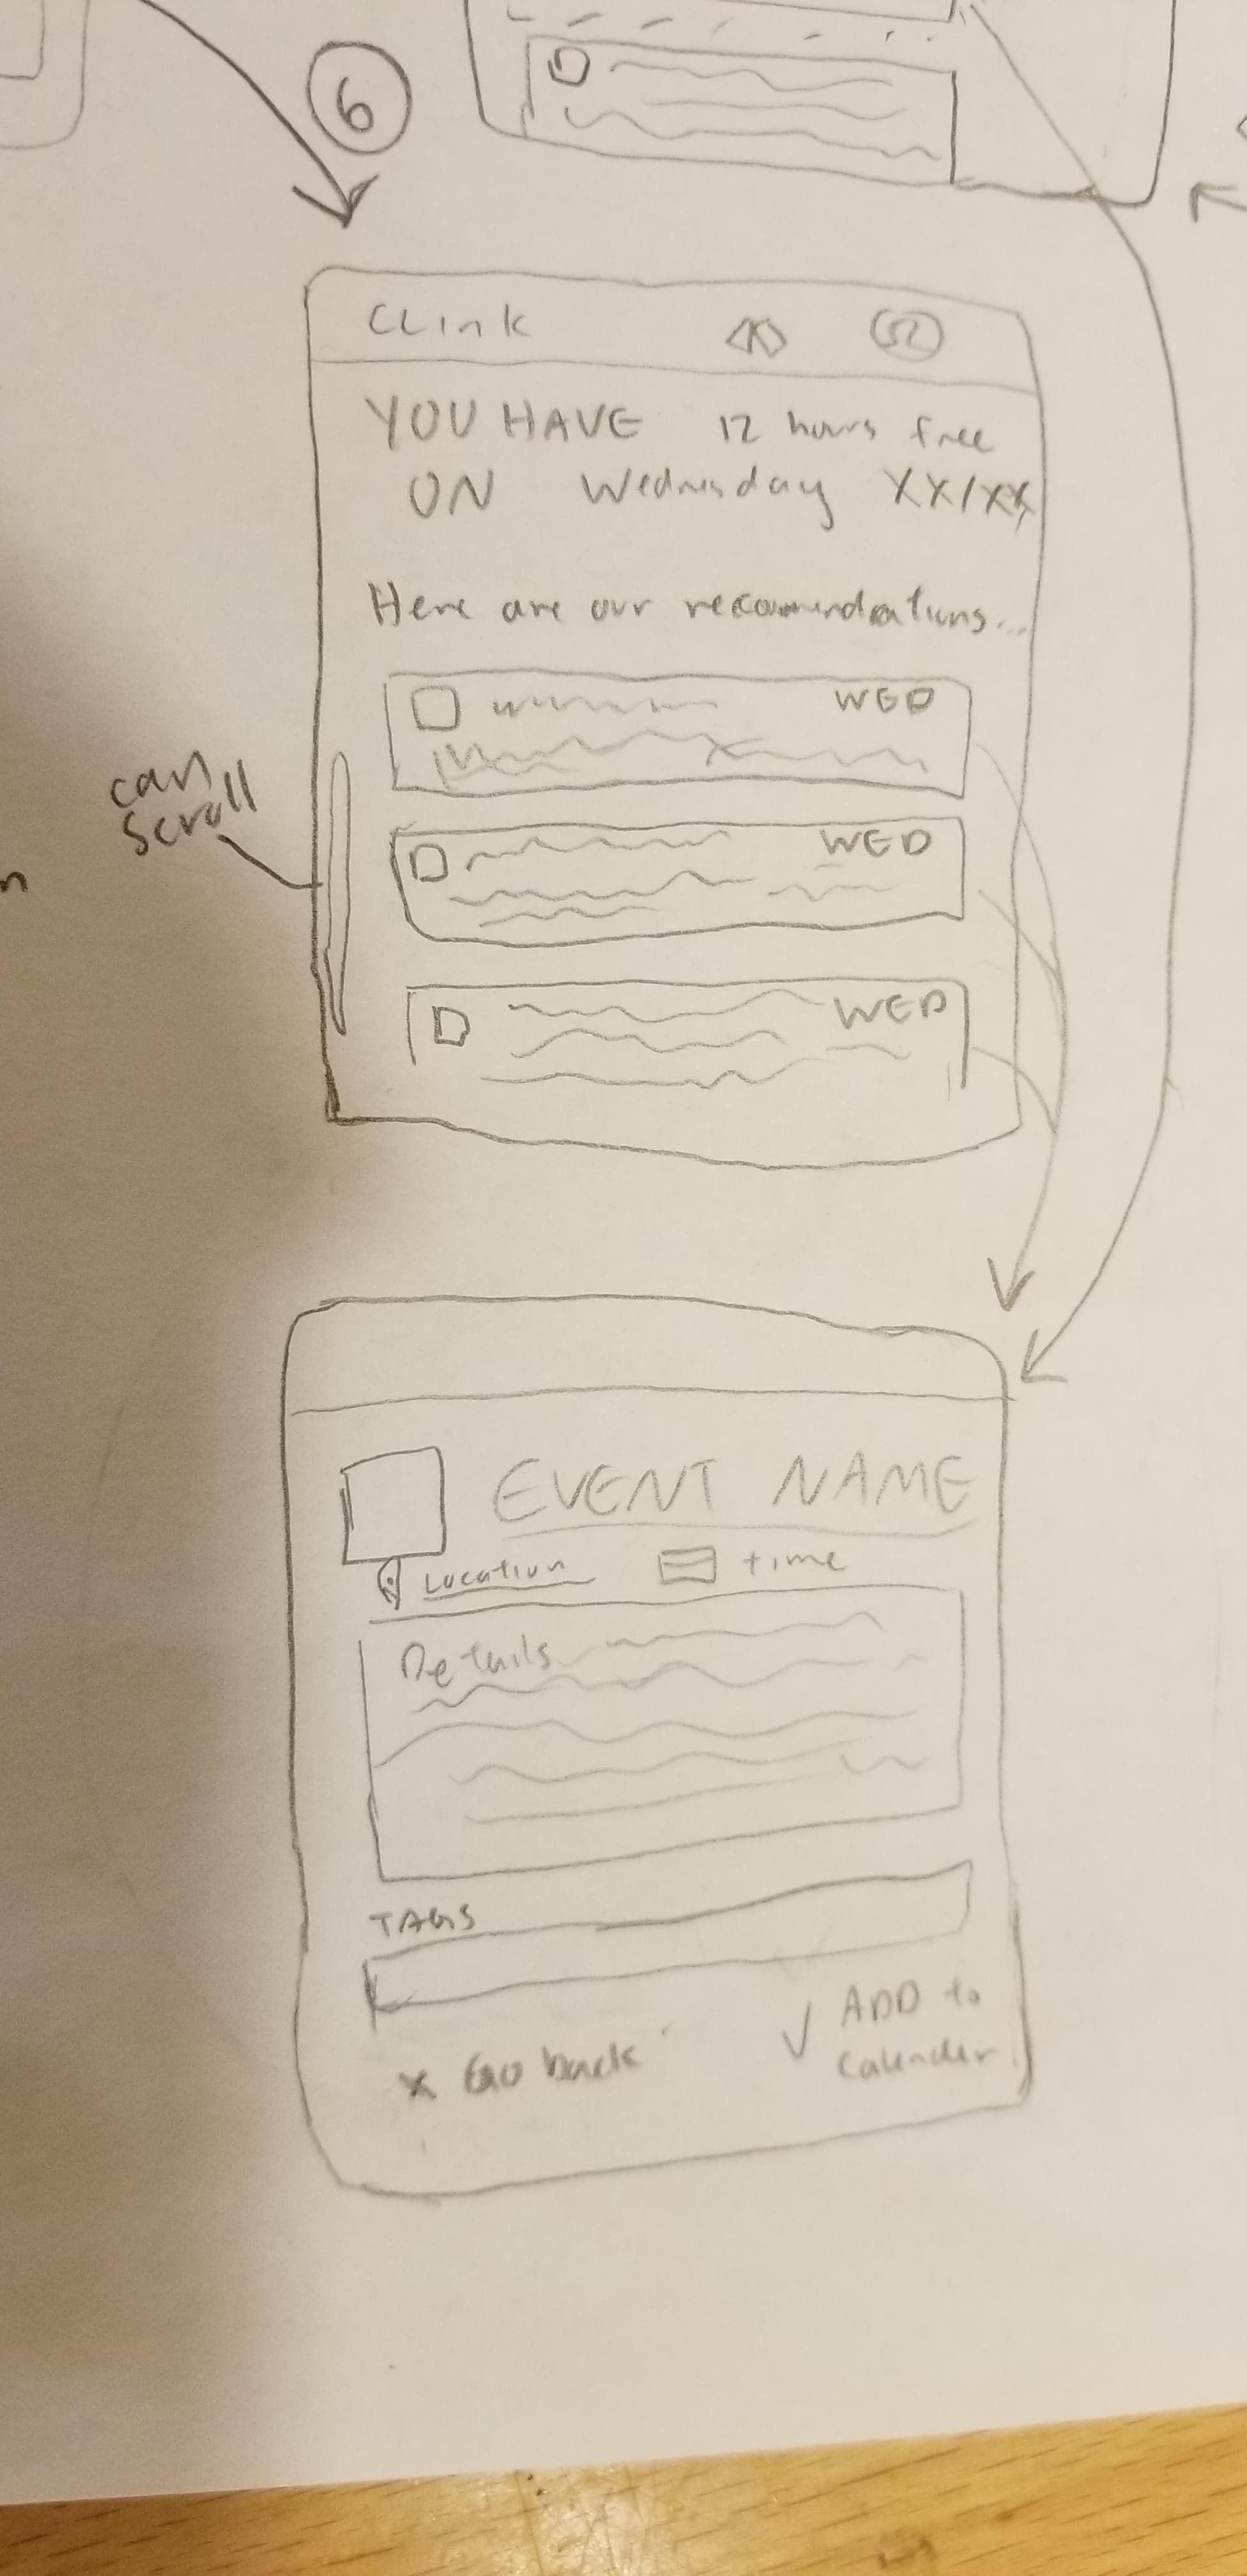 6
CLink
YOU HAVE 12 hours free
ON Wednesday XX/XX
Here are our recommendations...
WED
can
scroll
WED
n
WED
EVENT NAME
Location time
Details
TAGS
x Go back ✓ ADD to
Calender